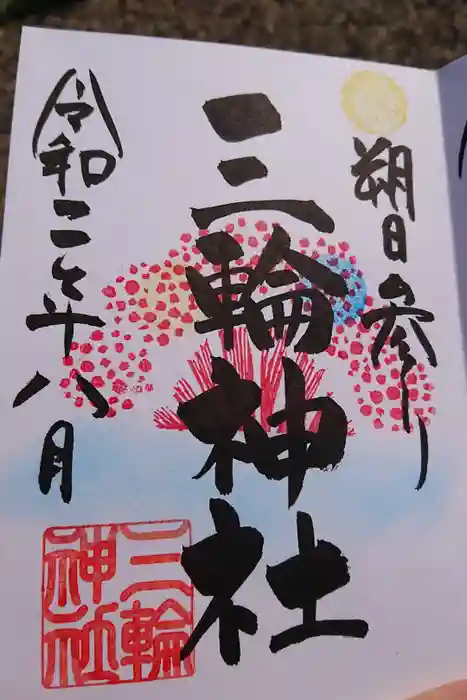 朔日の参り
三輪神社
令和二年八月
三輪
神社